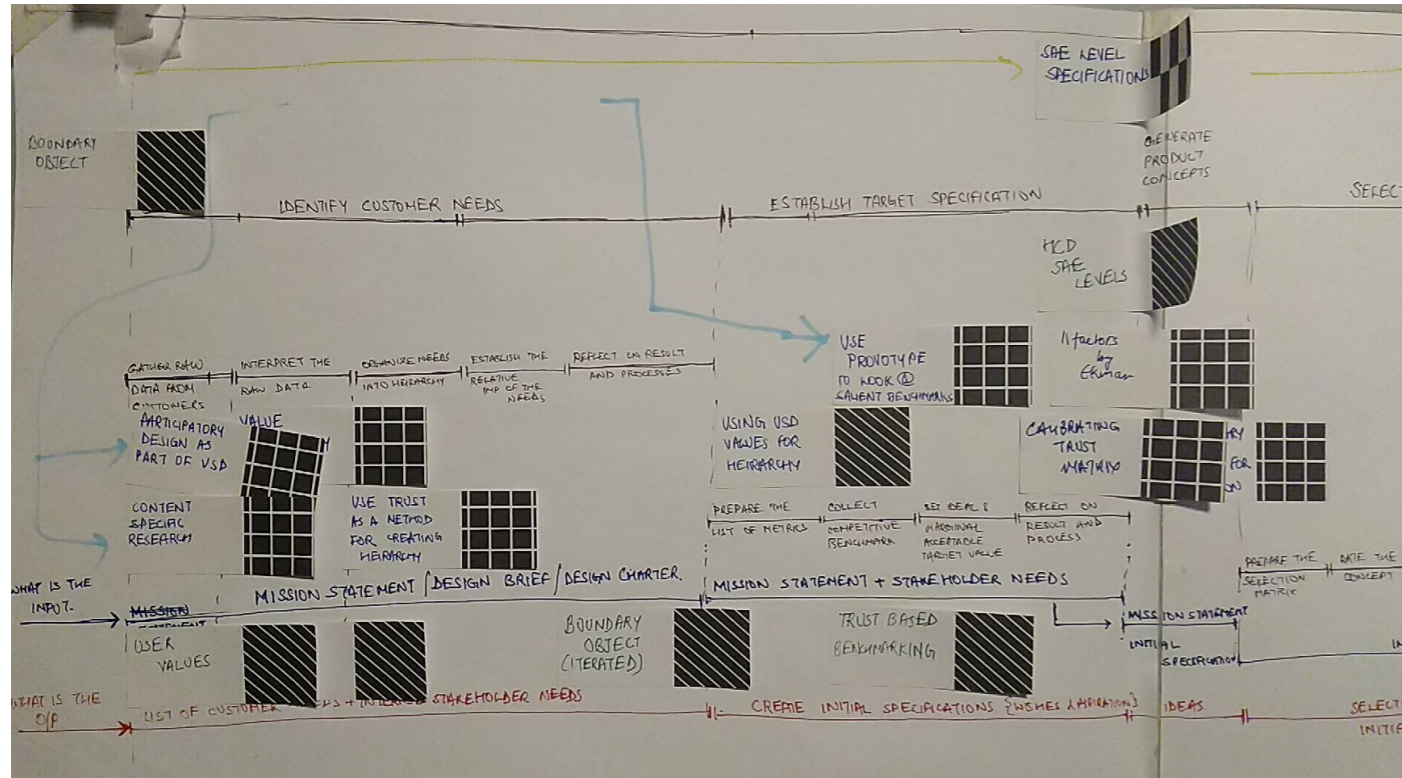 SAE LEVEL
SPECIFICATIONS
BOUNDARY
OBJECT
GENERATE
PRODUCT
CONCEPTS
IDENTIFY CUSTOMER NEEDS
ESTABLISH TARGET SPECIFICATION
SELECT
HCD
SAE
LEVELS
USE
PROVOTYPE
TO LOOK @
SALIENT BENCHMARKS
11 factors
by
Ekman
GATHER RAW
DATA FROM
CUSTOMERS
INTERPRET THE
RAW DATA
ORGANIZE NEEDS
INTO HEIRARCHY
ESTABLISH THE
RELATIVE
IMP OF THE
NEEDS
REFLECT ON RESULT
AND PROCESSES
PARTICIPATORY
DESIGN AS
PART OF VSD
VALUE
USING VSD
VALUES FOR
HEIRARCHY
CALIBRATING
TRUST
MATRIX
RY
FOR
ON
CONTENT
SPECIFIC
RESEARCH
USE TRUST
AS A METHOD
FOR CREATING
HEIRARCHY
PREPARE THE
LIST OF METRICS
COLLECT
COMPETITIVE
BENCHMARK
SET IDEAL &
MARGINAL
ACCEPTABLE
TARGET VALUE
REFLECT ON
RESULT AND
PROCESS
PREPARE THE
SELECTION
MATRIX
RATE THE
CONCEPT
WHAT IS THE
INPUT.
MISSION
MISSION STATEMENT / DESIGN BRIEF / DESIGN CHARTER.
MISSION STATEMENT + STAKEHOLDER NEEDS
MISSION STATEMENT
INITIAL
SPECIFICATION
IN
USER
VALUES
BOUNDARY
OBJECT
(ITERATED)
TRUST BASED
BENCHMARKING
WHAT IS THE
O/P
LIST OF CUSTOMER STAKEHOLDER NEEDS
CREATE INITIAL SPECIFICATIONS {WISHES & ASPIRATION}
IDEAS
SELECT
INITIA